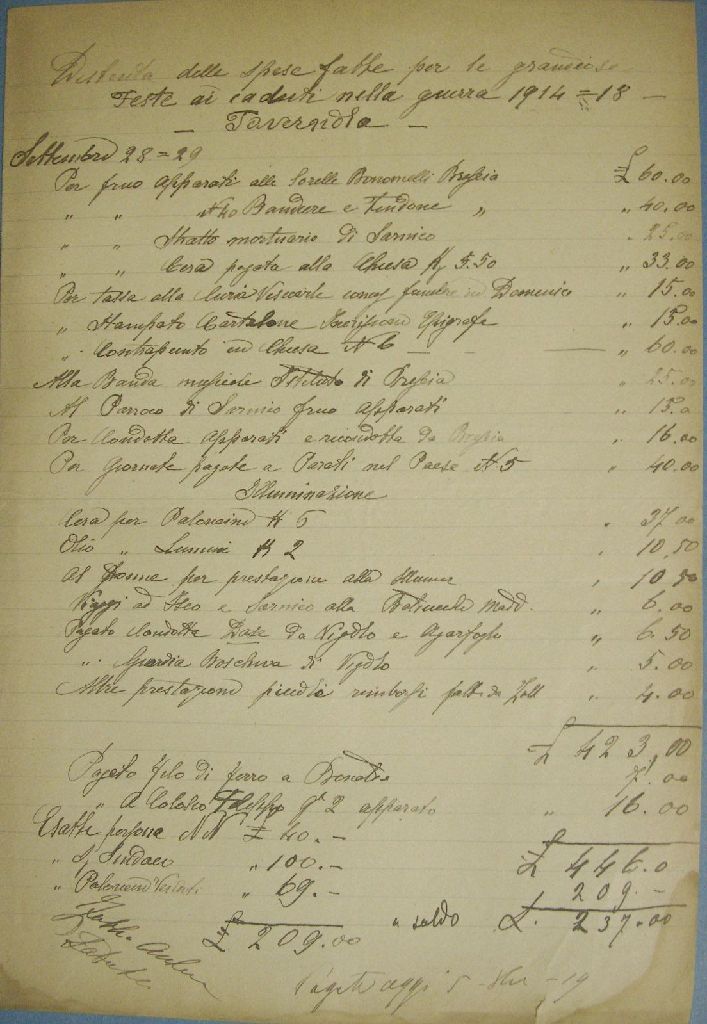 Distinta delle spese fatte per le grandiose
Feste ai caduti nella guerra 1914=18 —
— Tavernola —
Settembre 28=29
Per fruo apparati alle Sorelle Bonomelli Brescia £ 60.00
" " N 40 Bandiere e Tendone " " 40.00
" " Stratto mortuario di Sarnico " 25.00
" " Cera pagata alla Chiesa K 5.50 " 33.00
Per tassa alla Curia Vescovile funebre in Domenica " 15.00
" Stampato Cartelone Iscrizioni Epigrafe " 15.00
" Contrapunto in Chiesa N 6 — — — " 60.00
Alla Banda musicale Istituto di Brescia " 25.00
Al Parroco di Sarnico fruo apparati " 15.0
Per Condotta apparati e ricondotta da Brescia " 16.00
Per Giornate pagate a Parati nel Paese N 5 " 40.00
Illuminazione
Cera per Paloncini K 5 " 37.00
Olio " Lumini K 2 " 10,50
Al Donne per prestazione alla " 10.50
Viaggi ad Iseo e Sarnico alla " 6.00
Pagato Condotta da Vigolo e " 6.50
" Guardia Boschiva di Vigolo " 5.00
Altre prestazioni piccoli rimborsi " 4.00
£ 423,00
Pagato filo di ferro a 7.00
" A 2 apparato " 16.00
Esatte persona NN £ 40.-
" Sindaco " 100.- £ 446.0
" Paloncini " 69.- 209.-
£ 209.00 " saldo £. 237.00
Pagato oggi 5 - - 19